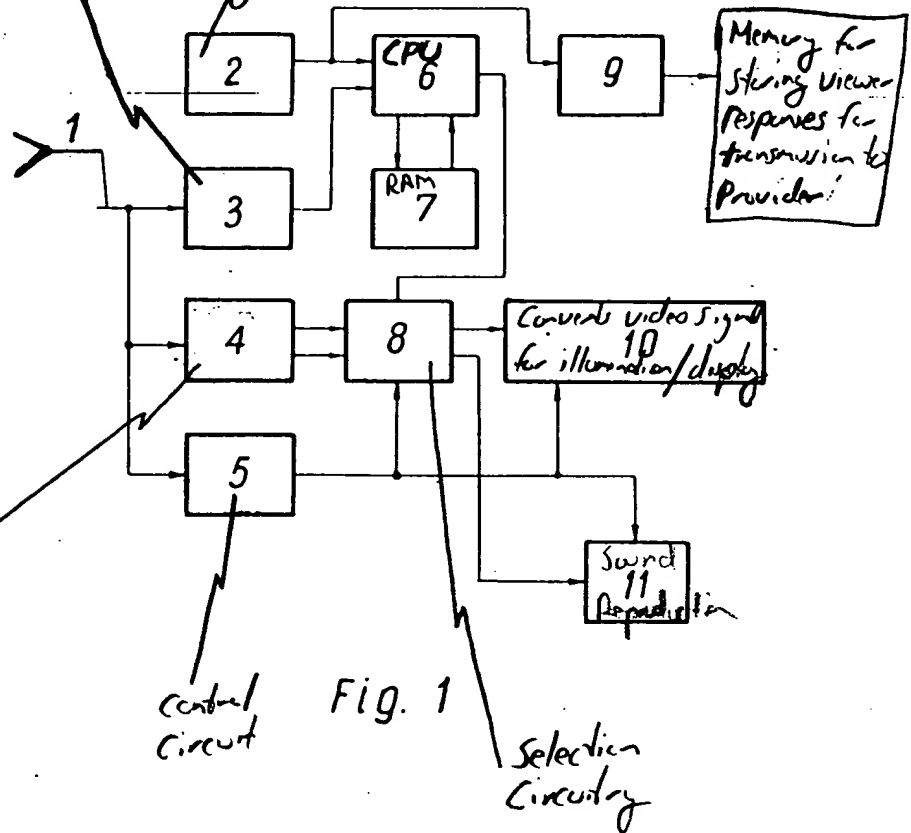 1
2
CPU
6
9
Memory for
storing viewer
responses for
transmission to
Provider
3
RAM
7
4
8
Converts video signal
10
for illumination/display
5
Sound
11
Reproduction
control
circuit
Fig. 1
Selection
Circuitry